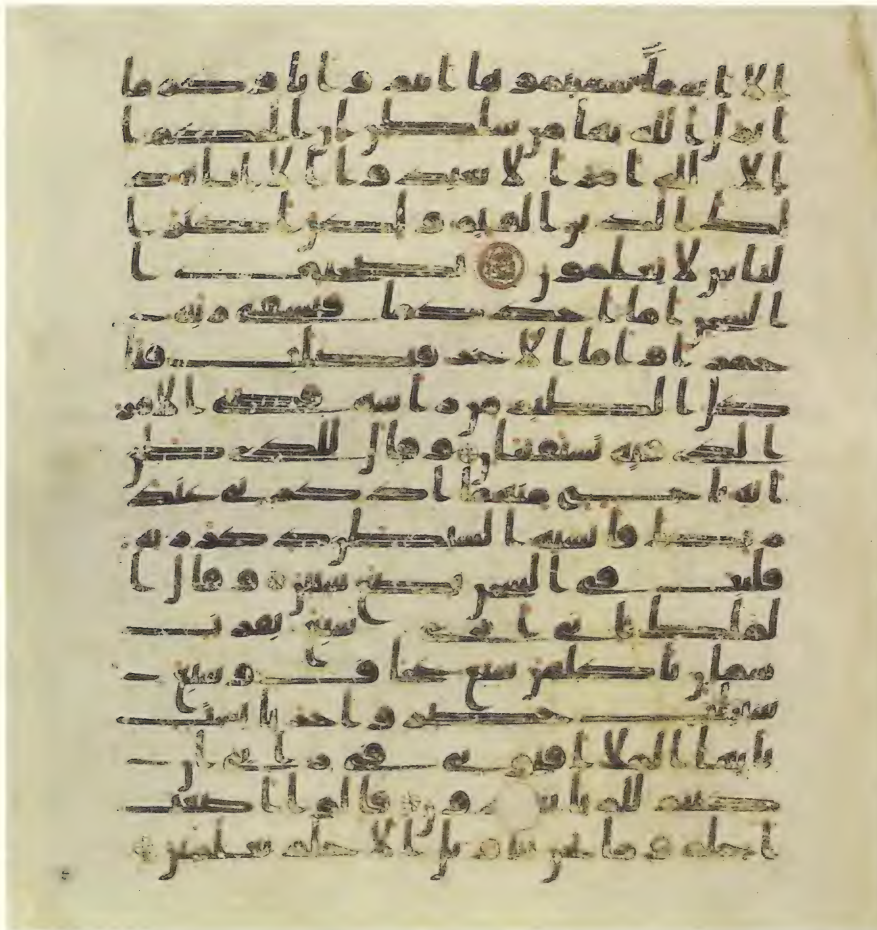 الا اسما سميتموها انتم واباوكم ما
انزل الله بها من سلطن ان الحكم ا
لا لله امر الا تعبدوا الا اياه ذ
لك الدين القيم ولكن اكثر ا
لناس لا يعلمون يصحبي ا
لسجن اما احدكما فيسقي ربه
خمرا واما الاخر فيصلب فتا
كل الطير من راسه قضي الامر
الذي فيه تستفتين وقال للذي ظن
انه ناج منهما اذكرني عند
ربك فانسيه الشيطن ذكر ربه
فلبث في السجن بضع سنين وقال ا
لملك اني ارى سبع بقرت
سمان ياكلهن سبع عجاف وسبع
سنبلت خضر واخر يابست
يايها الملا افتوني في رءيي ان
كنتم للريا تعبرون قالوا اضغث
احلم وما نحن بتاويل الاحلم بعلمين